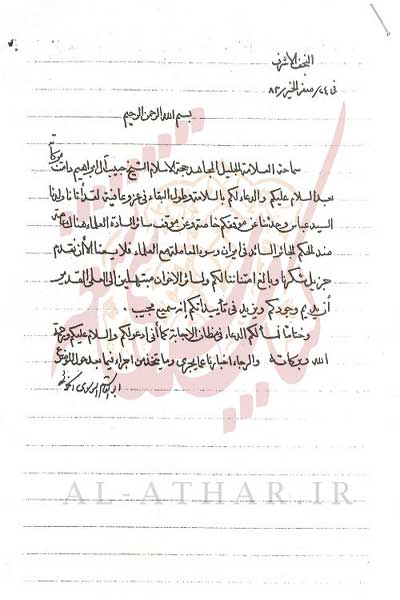 النجف الاشرف
في ٢٤/ صفر الخير/ ٨٣
بسم الله الرحمن الرحيم
سماحة العلامة الجليل المجاهد حجة الاسلام الشيخ حبيب آل ابراهيم دامت بركاته
بعد السلام عليكم والدعاء لكم بالسلامة وطول البقاء في عز وعافية لقد أتانا ولدنا
السيد عباس وحدثنا عن موقفكم خاصة وعن موقف سائر السادة العلماء هناك عامة
ضد الحكم الجائر السائد في ايران وسوء المعاملة مع العلماء فلا يسعنا الا أن نقدم
جزيل شكرنا وبالغ امتناننا لكم ولسائر الاخوان مبتهلين الى العلي القدير
أن يديم وجودكم ويزيد في تأييداتكم إنه سميع مجيب .
وختاماً نسألكم الدعاء في مظان الاجابة كما أني ادعو لكم والسلام عليكم ورحمة
الله وبركاته والرجاء اخبارنا عما يجري وما يتخذ من اجراء فيما بعد حول الموضوع
ابو القاسم الموسوي الخوئي
AL-ATHAR.IR